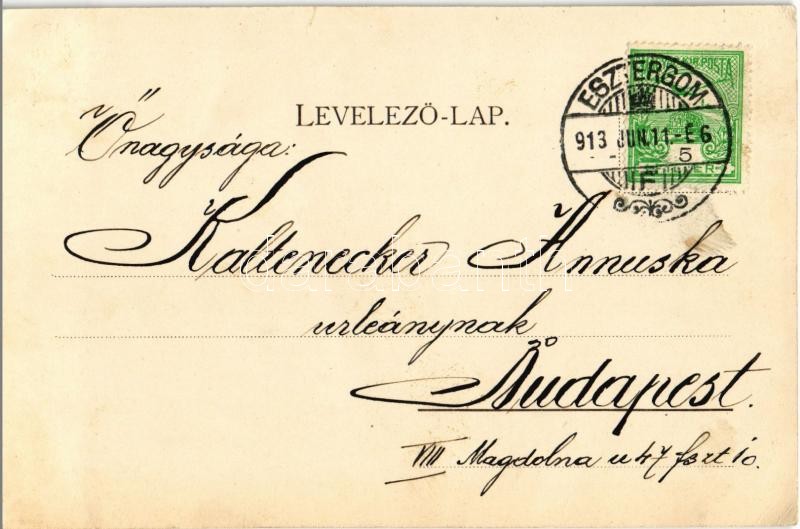 LEVELEZŐ-LAP.
KIR. POSTA
ESZTERGOM
913 JUN.11-E6
5
Őnagysága:
Kaltenecker Annuska
urleánynak
Budapest.
VIII Magdolna u 47 fszt 10.